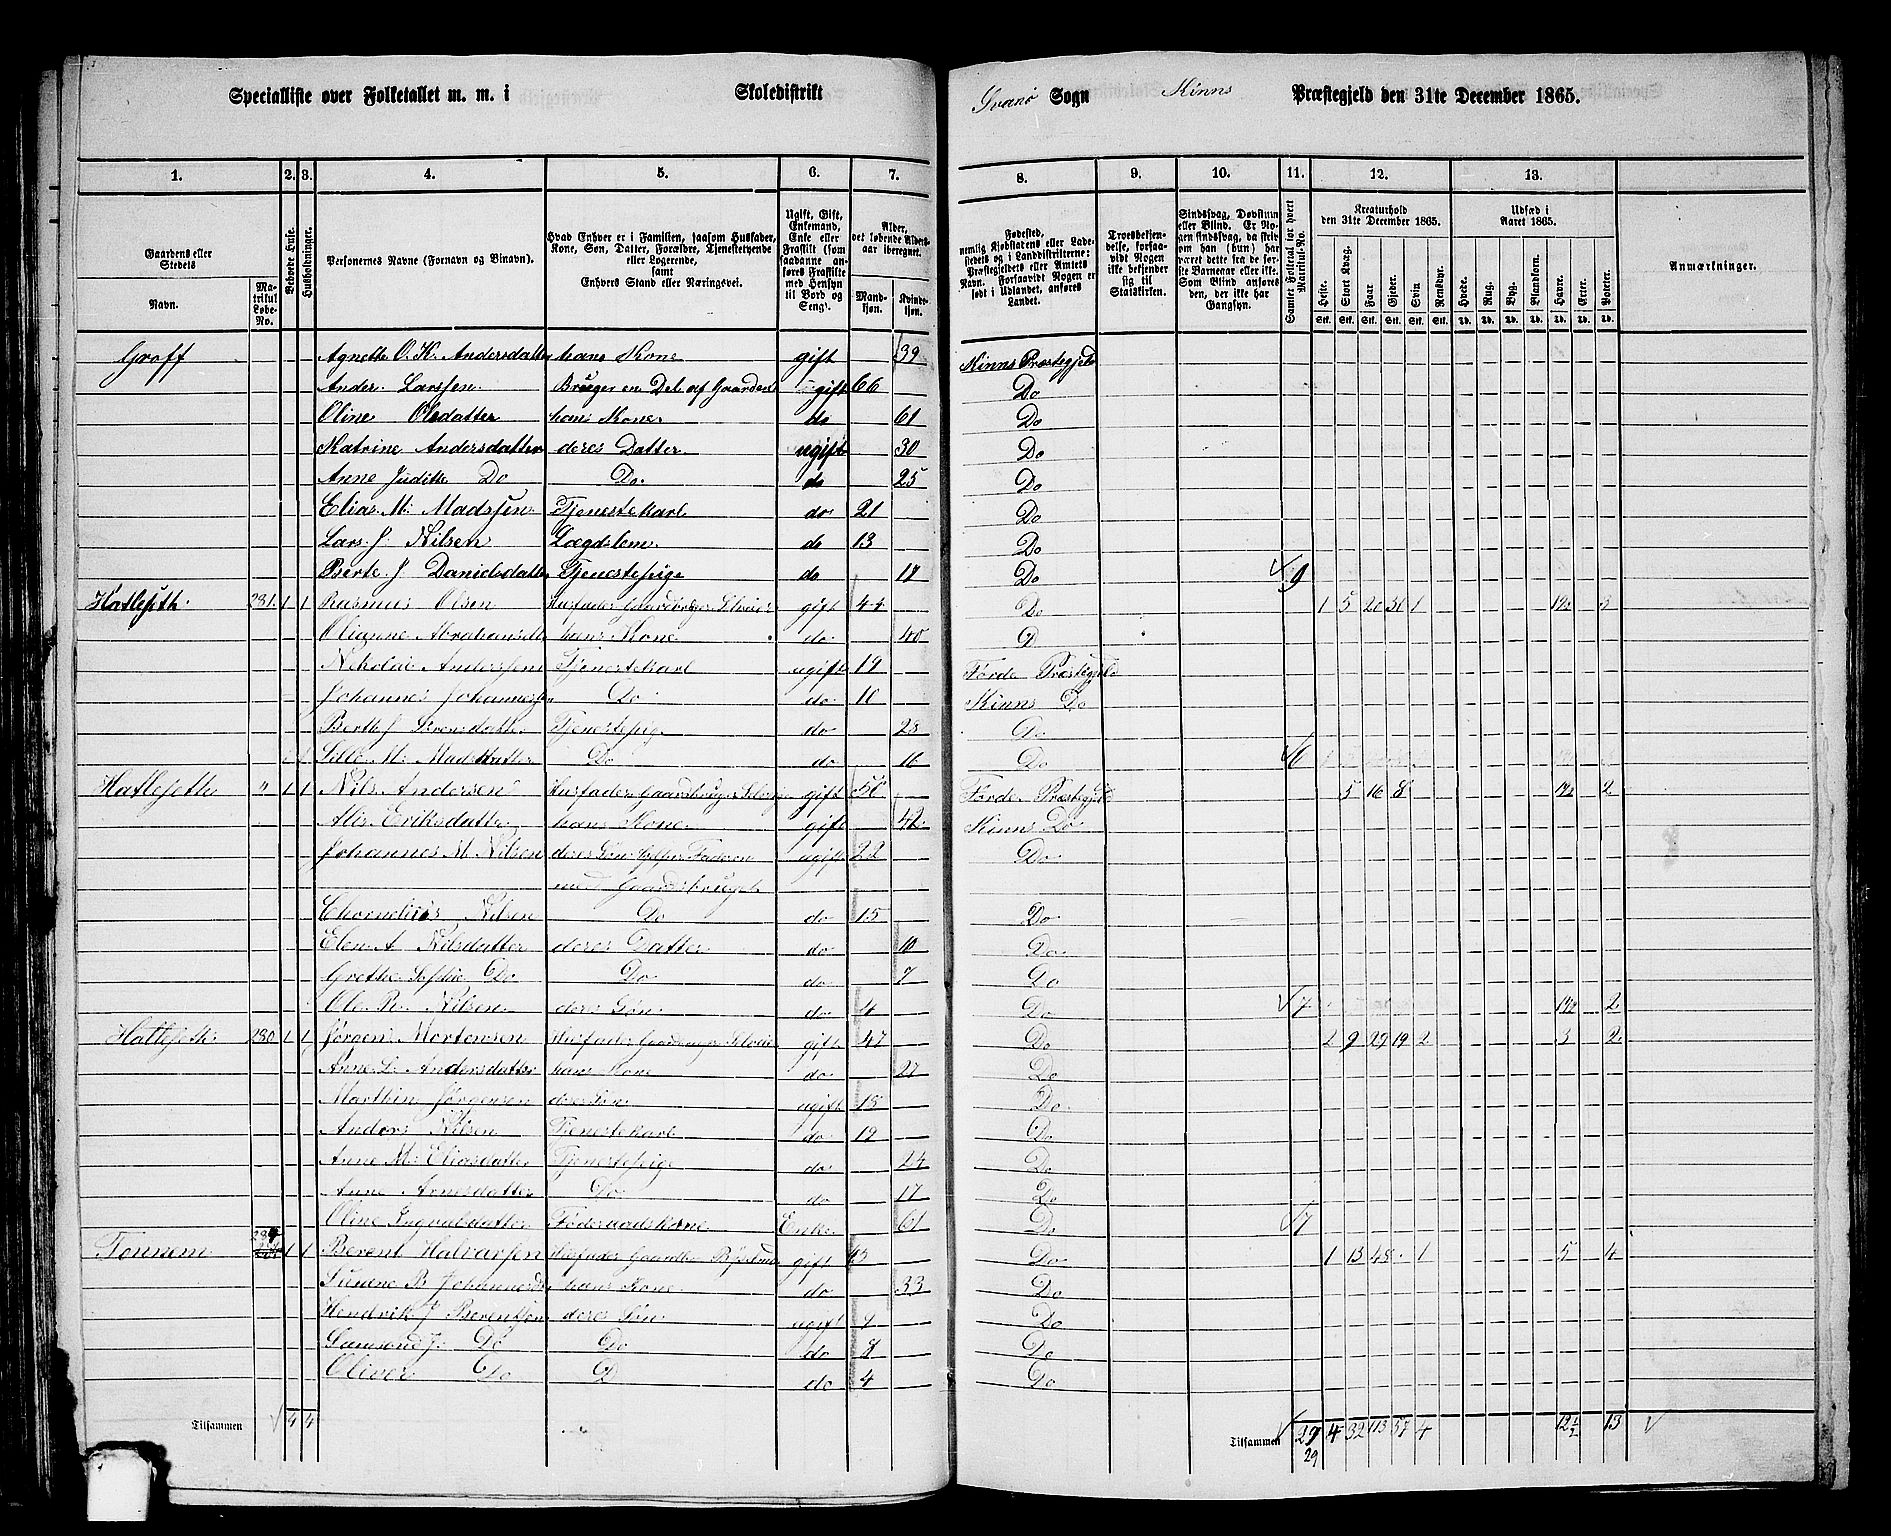 Specialliste over Folketallet m. m. i Skoledistrikt Svanø Sogn Kinns Præstegjeld den 31te December 1865.
1. 2. 3. 4. 5. 6. 7. 8. 9. 10. 11. 12. 13.
Gaardens eller Stedets
Navn.
Matrikul Løbe-No.
Beboede Huse.
Husholdninger.
Personernes Navne (Fornavn og Binavn).
Hvad Enhver er i Familien, saasom Husfader, Kone, Søn, Datter, Forældre, Tjenestetyende eller Logerende, samt Enhvers Stand eller Næringsvei.
Ugift, Gift, Enkemand, Enke eller Fraskilt (som saadanne anføres Fraskilte med Hensyn til Bord og Seng).
Alder, det løbende Alders-aar iberegnet.
Mandkjøn. Kvindekjøn.
Fødested, nemlig Kjøbstadens eller Ladestedets og i Landdistrikterne: Præstegjeldets eller Amtets Navn. Forsaavidt Nogen er født i Udlandet, anføres Landet.
Troesbekjendelse, forsaavidt Nogen ikke bekjender sig til Statskirken.
Sindssvag, Døvstum eller Blind. Er Nogen sindssvag, da skrives om han (hun) har været dette fra de første Barneaar eller ikke. Som Blind anføres den, der ikke har Gangsyn.
Samlet Folketal for hvert Matricul-No.
Kreaturhold den 31te December 1865.
Heste. Stort Kvæg. Faar Gjeder. Svin Rensdyr.
Udsæd i Aaret 1865.
Hvede. Rug. Byg. Blandkorn. Havre. Erter. Poteter.
Anmærkninger.
Groff Agnette O. K. Andersdatter hans Kone gift 39 Kinns Præstegjeld
Anders Larssen Bruger en Del af Gaarden gift 66 Do
Oline Olsdatter hans Kone do 61 Do
Katrine Andersdatter deres Datter ugift 30 Do
Anne Judithe Do Do do 25 Do
Elias M. Madssen Tjenestekarl do 21 Do
Lars J. Nilsen Lægdslem do 13 Do
Berte J Danielsdatter Tjenestepige do Do 9
Hatleseth 281. 1 1 Rasmus Olsen Husfader Gaardbruger Selveier gift 44 Do 1 5 20 1
Olianne hans Kone do 40 D
Nikolai Anderssen Tjenestekarl ugift 19 Førde Præstegjeld
Johannes Johannessen Do do Kinns Do
Do
Madsdatter Do do 16 Do 6
Hatlesette " 1 1 Nils Andersen Husfader Gaardbruger Selveier gift 56 Førde Præstegjeld 5 16 8 2
Eriksdatter hans Kone gift 42 Kinns Do
Johannes M. Nilsen deres Søn hjelper Faderen ugift 22 Do
med Gaardsbruget
Nilsen Do do 15 Do
Elen A Nilsdatter deres Datter do 10 Do
Grethe Sophie Do Do do 7 Do
Ole R. Nilsen deres Søn do 4 Do 7 2
280 1 1 Jørgen Mortensen Husfader Gaardbruger Selveier gift 47 Do 2 9 29 19 2 3 2
Anne L. Andersdatter hans Kone do 27 Do
Marthin Jørgensen deres Søn ugift 15 Do
Anders Nilsen Tjenestekarl do 19 Do
Anne M. Eliasdatter Tjenestepige do 24 Do
Anne Arnesdatter Do do 17 Do
Oline Ingvalsdatter Føderaadskone Enke 61 Do 7
Tonnem 1 1 Berent Halvarsen Husfader gift Do 1 13 48 1 5 4
hans Kone do 33 Do
Hendrik J Berentsen deres Søn ugift Do
Samson J. Do Do do 8 Do
Oliver Do D do 4 Do
Tilsammen 4 4 Tilsammen 29 4 32 113 57 4 12 1/2 13
29